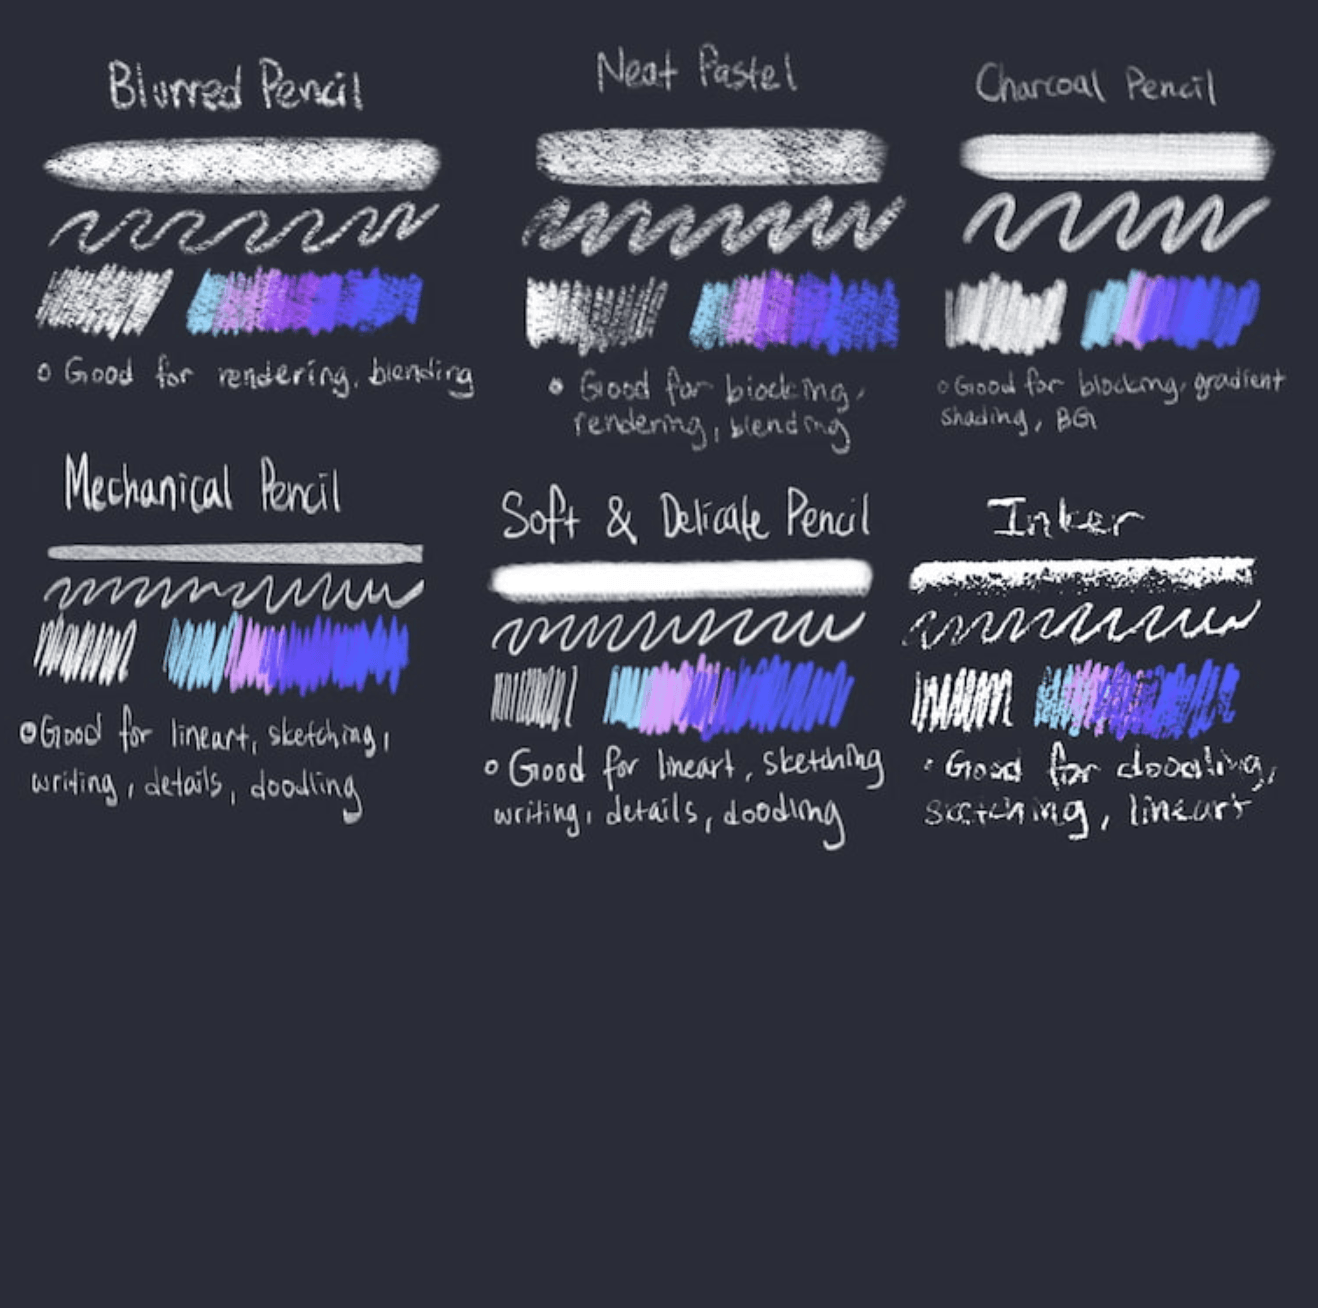 Blurred Pencil
Good for rendering, blending
Neat Pastel
Good for blocking,
rendering, blending
Charcoal Pencil
Good for blocking, gradient
shading, BG
Mechanical Pencil
Good for lineart, sketching,
writing, details, doodling
Soft & Delicate Pencil
Good for lineart, sketching
writing, details, doodling
Inker
Good for doodling,
sketching, lineart